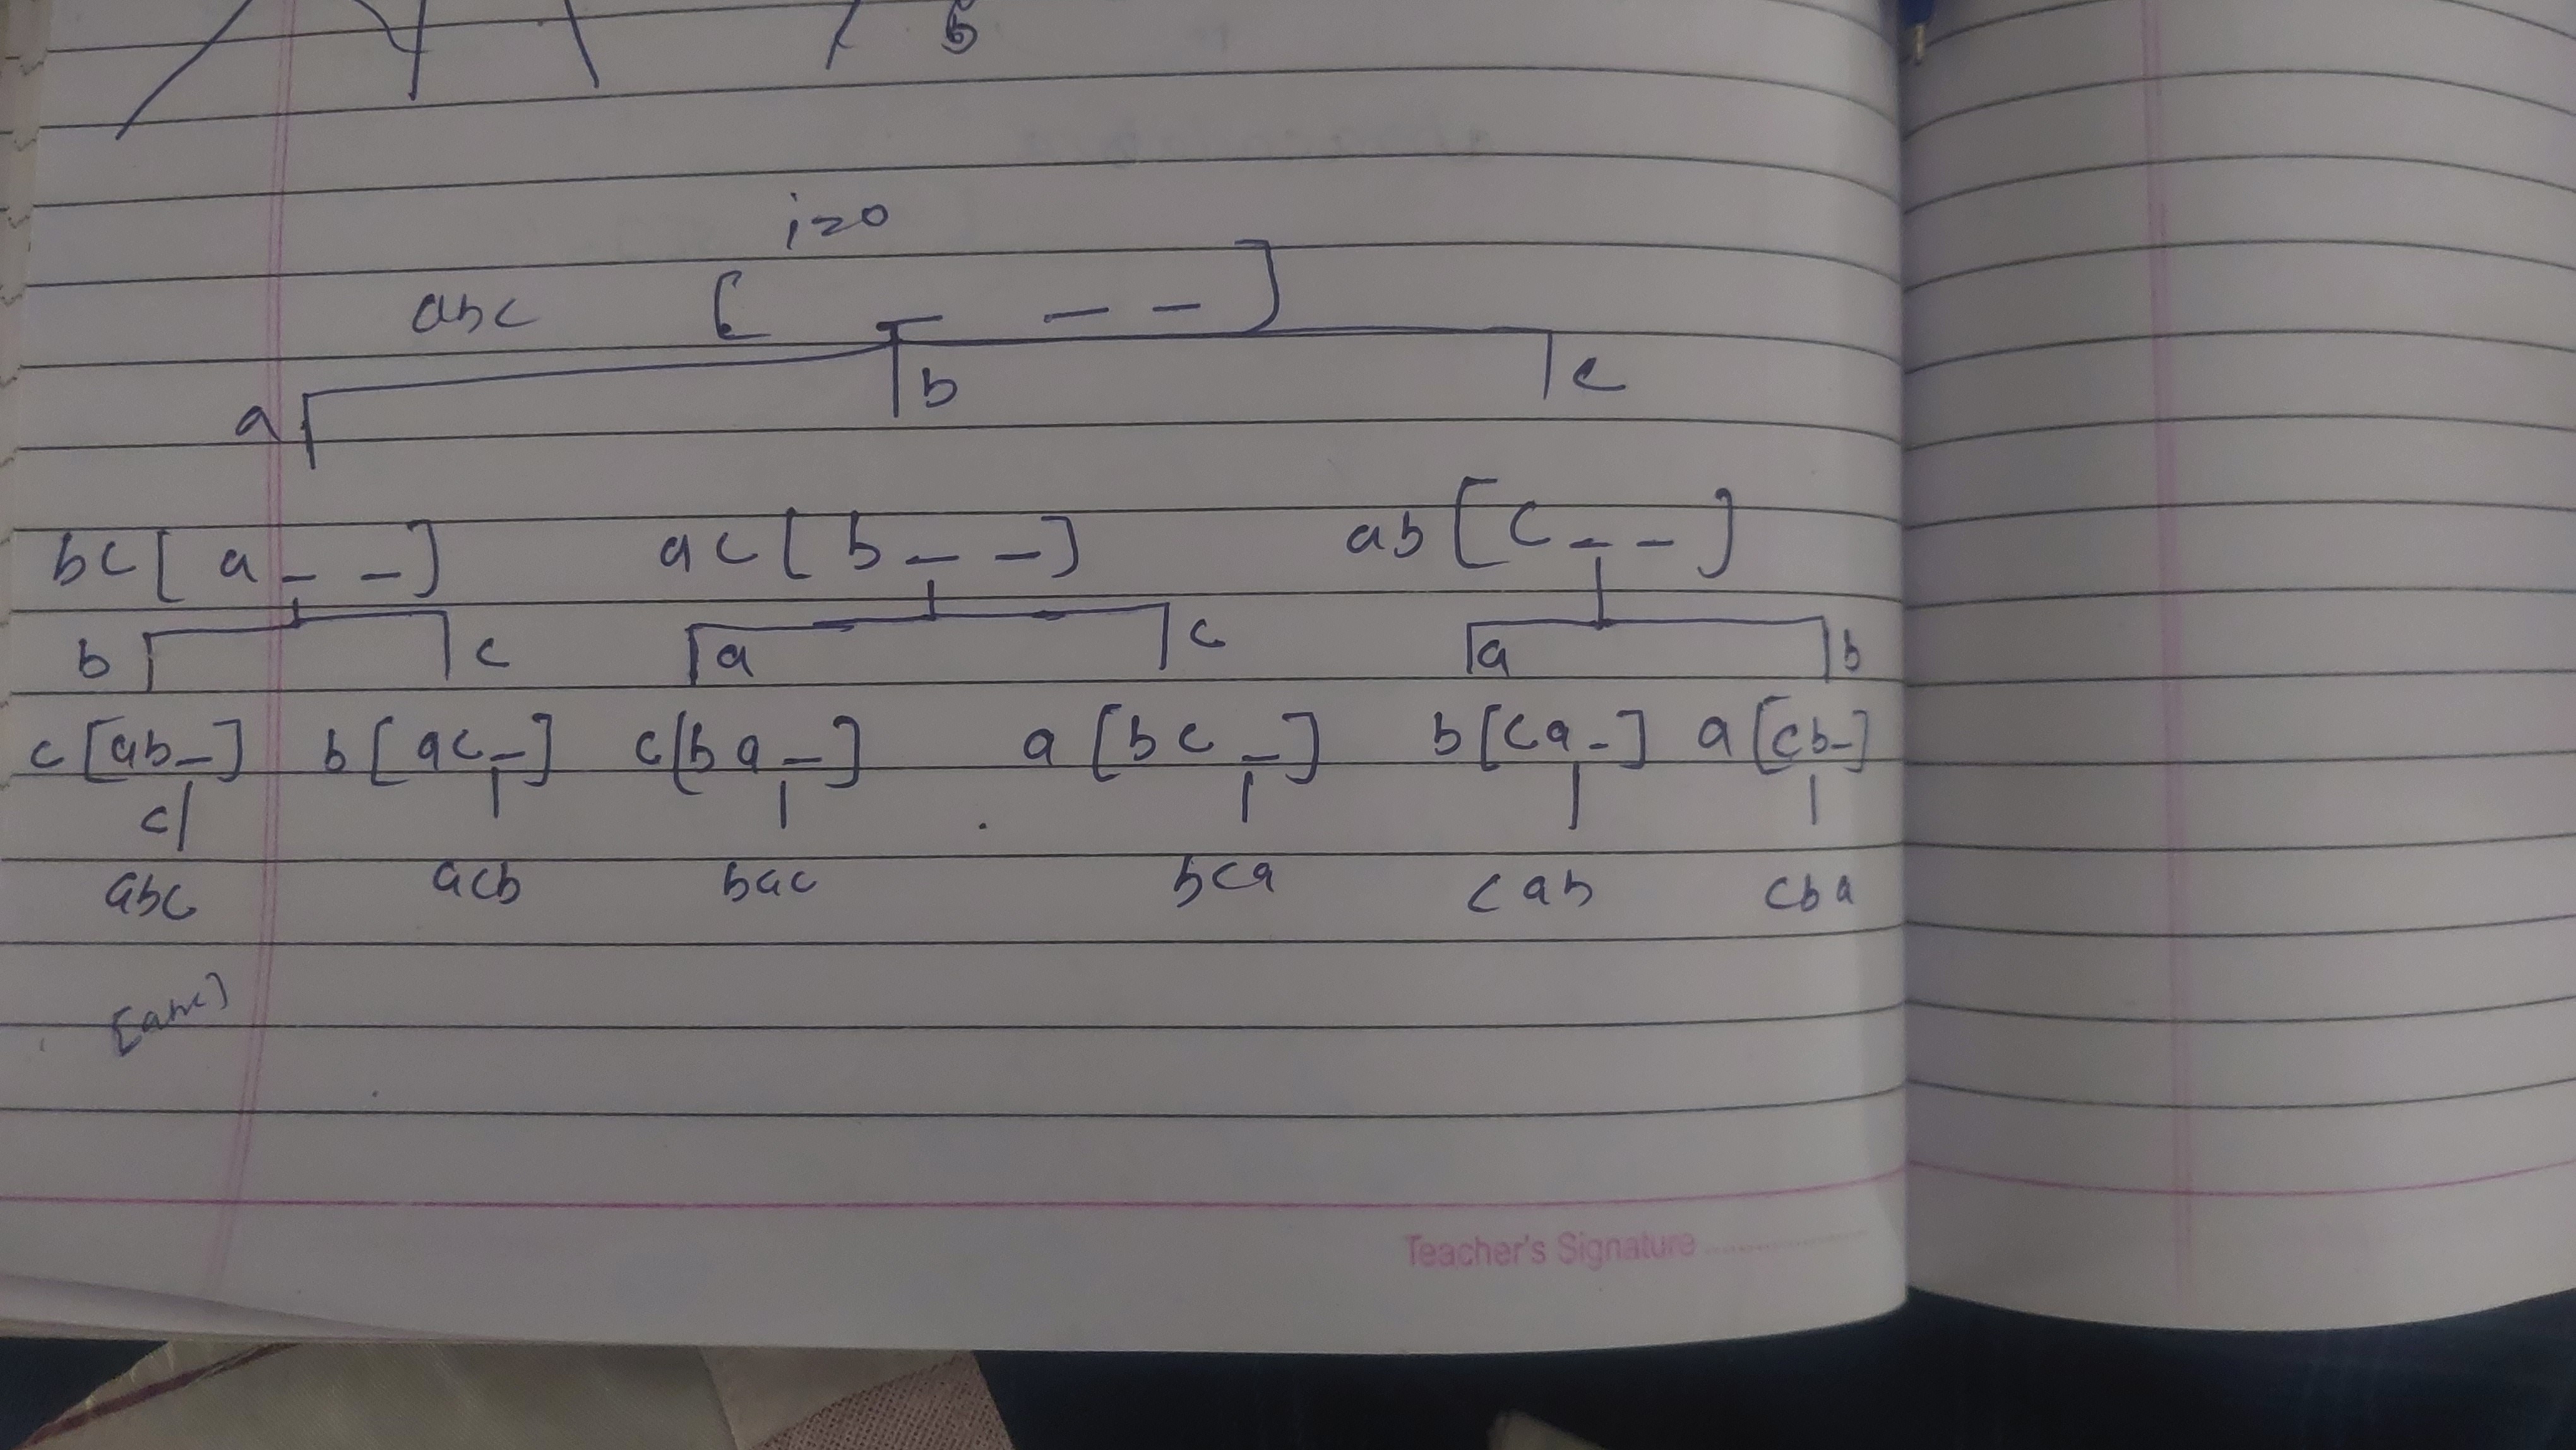 6
i=0
abc [ _ _ _ ]
a b c
bc [ a _ _ ] ac [ b _ _ ] ab [ c _ _ ]
b c a c a b
c [ab_] b [ac_] c [ba_] a [bc_] b [ca_] a [cb_]
c
abc acb bac bca cab cba
Teacher's Signature